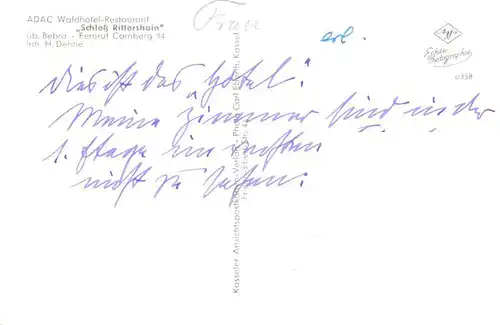 ADAC Waldhotel-Restaurant
„Schloß Rittershain"
üb. Bebra - Fernruf Cornberg 94
Inh. H. Dehne
Frau
erl.
Agfa
Echte
Photographie
Dies ist das „Hotel".
Meine Zimmer sind in der
1. Etage im
nicht zu sehen.
Kasseler Ansichtspostkarten-Verlag, Photo-Carl Eberth, Kassel